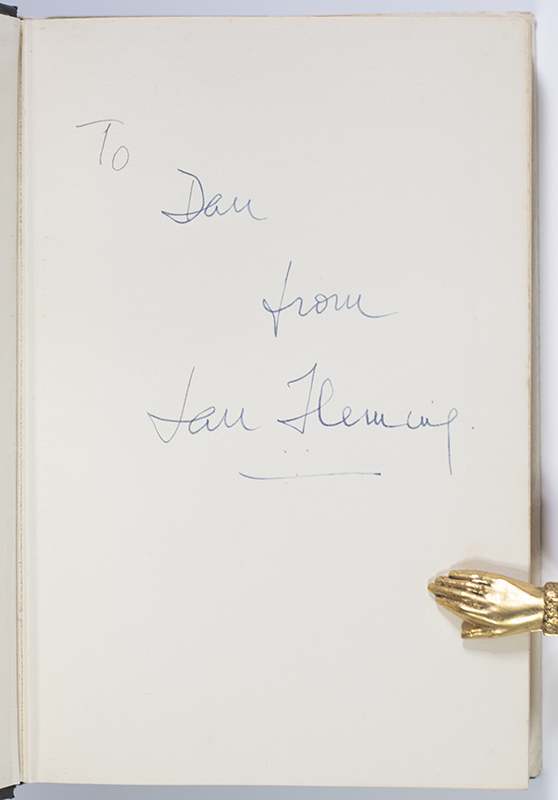 To
Dan
from
Ian Fleming.